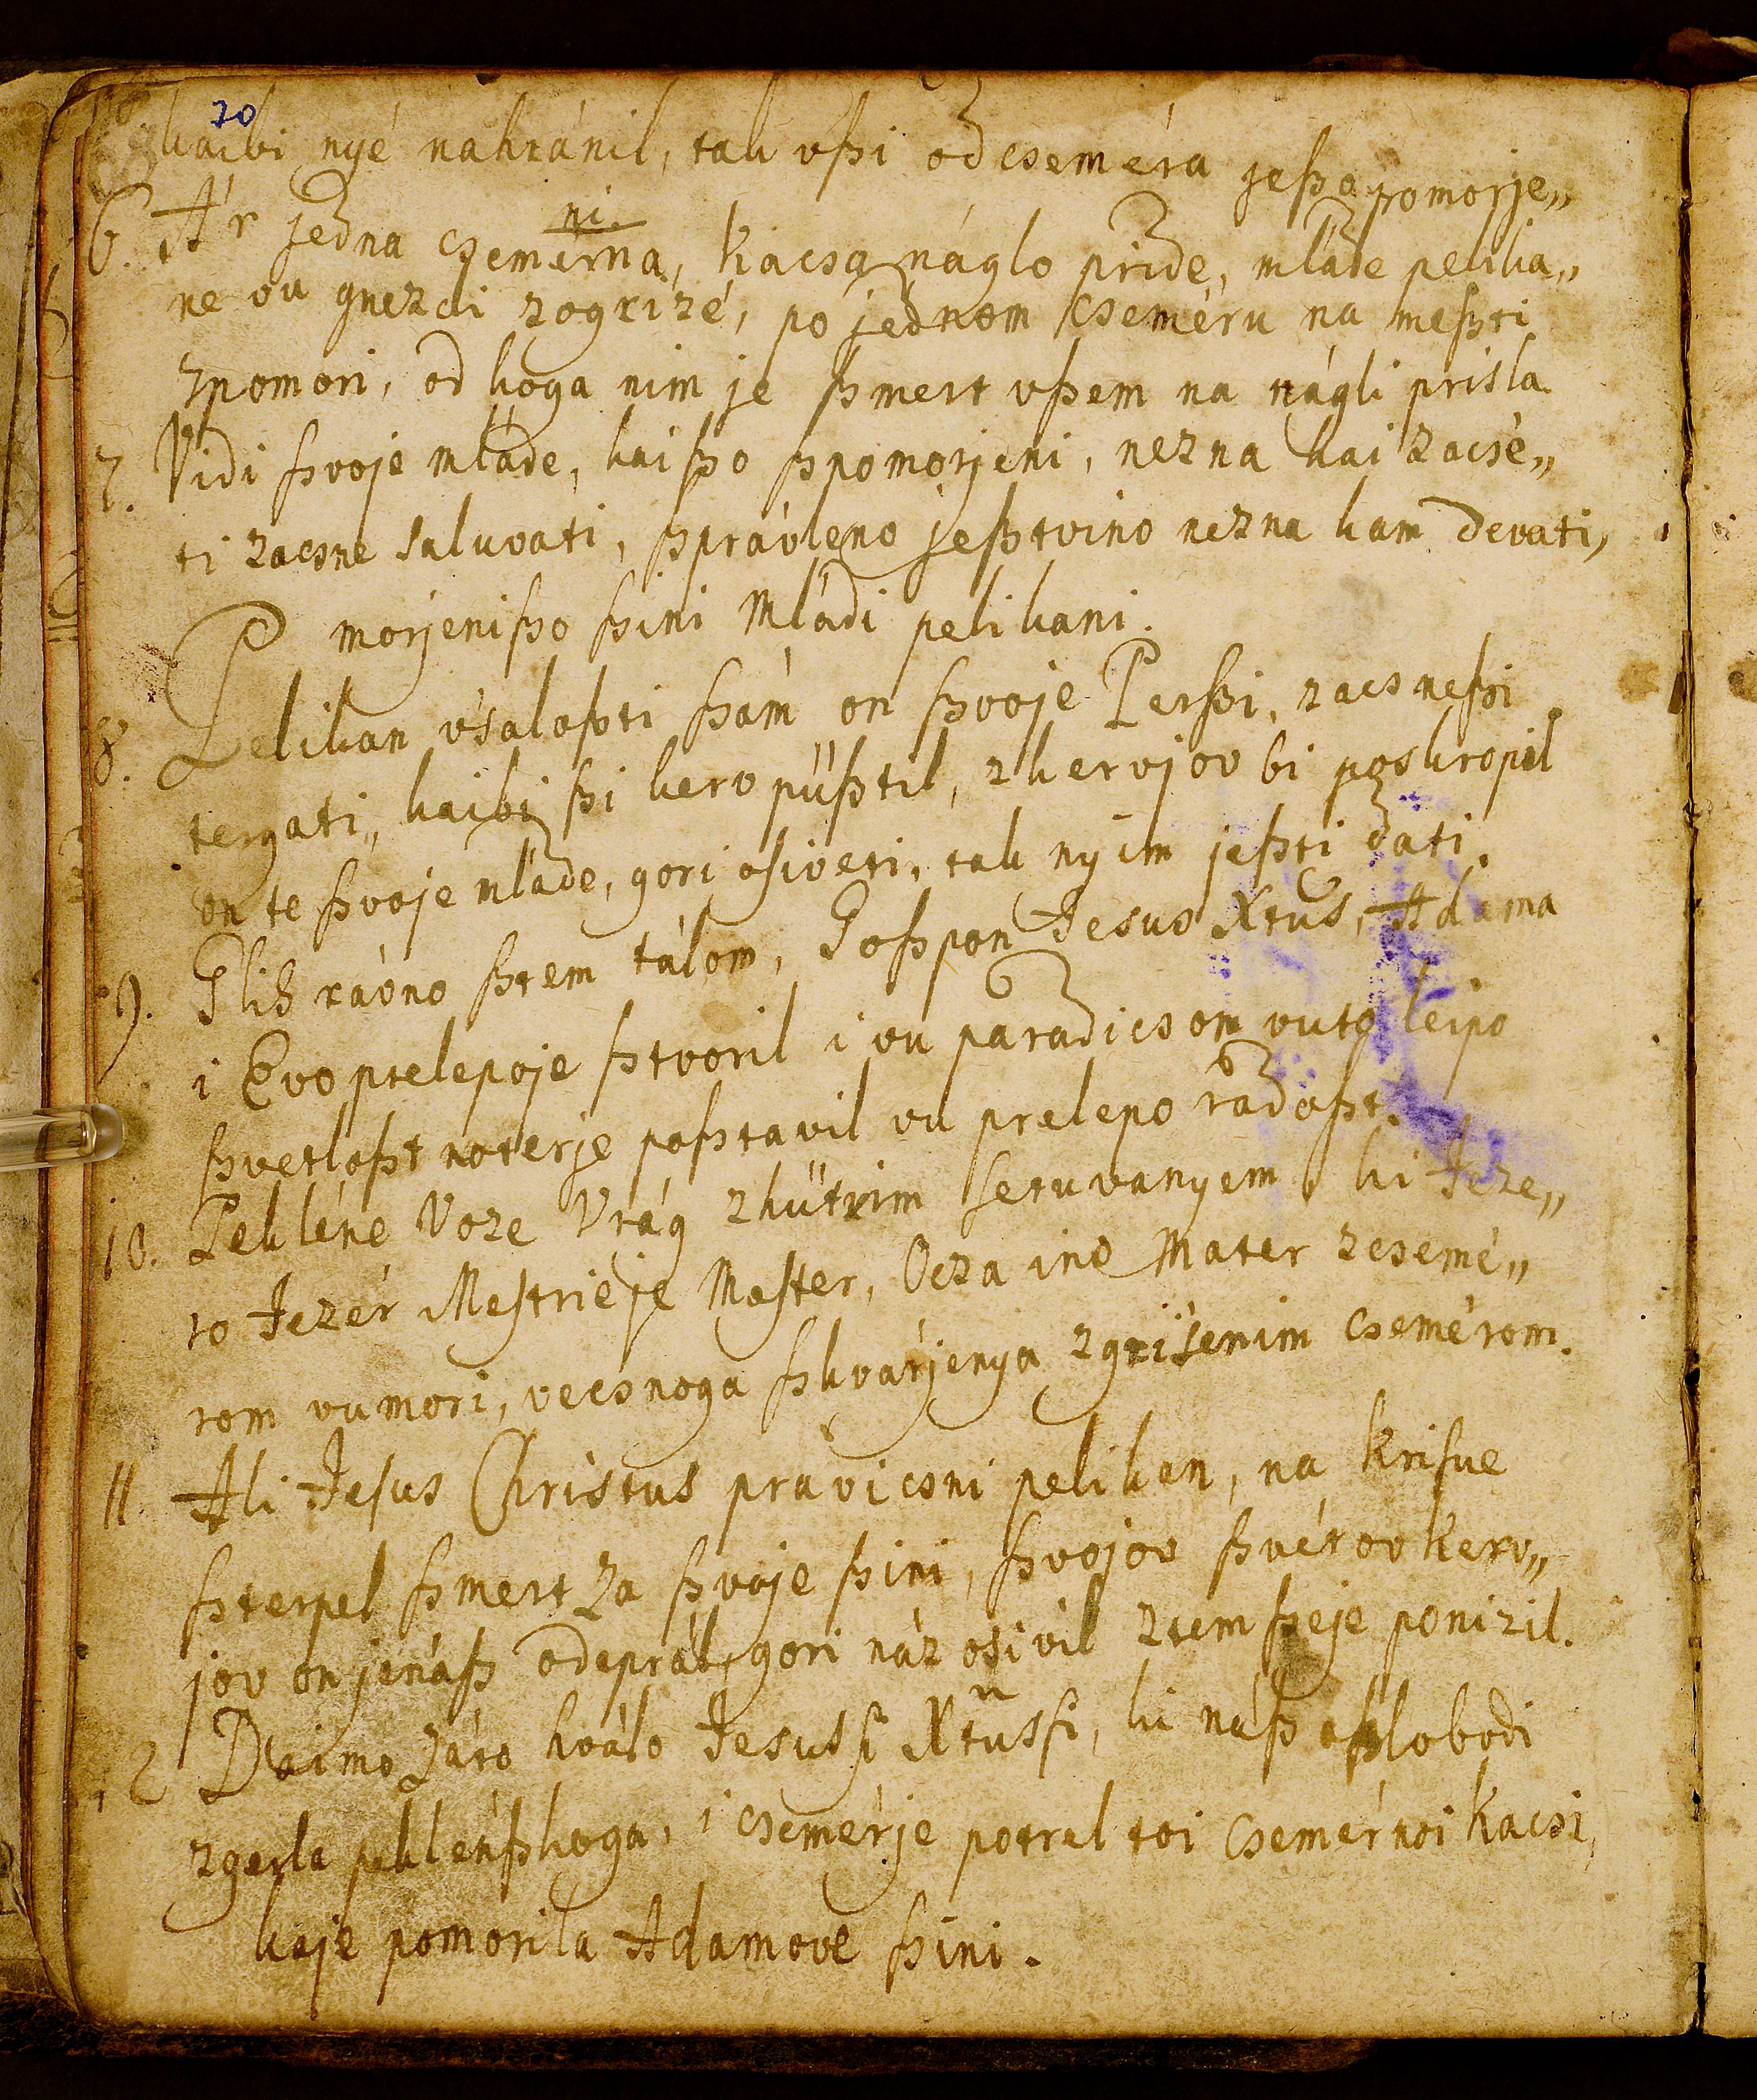 70
kaibi nyé nahránil, tak vßi od cseméra jeßo pomorje„
ni.
6. Ár jedna csemérna, kacsa náglo pride, mláde pelika„
ne vu gnezdi zogrizé, po jednom cseméru na meßti
zpomori, od koga nim je ßmert vßem na nágli prisla
7. Vidi ßvoje mláde, kaißo ßpomorjeni, nezna kai zacsé„
ti zacsne saluvati, ßprávleno jeßtvino nezna kam devati,
P morjenißo ßini Mládi pelikani.
8. Pelikan vsaloßti ßám on ßvoje Perßi, zacsneßi
tergati„ kaibi ßi kerv püßtil, zkervjov bi poskropil
on te ßvoje mláde, gori osiveti, tak nyim jeßti dati.
9. Glih rávno ßtem tálom, Goßpon Jesus Xtus, Adama
i Evo prelepoje ßtvoril i vu paradicsom vuto leipo
ßvetloßt noterje poßtavil vu prelepo rádoßt.
10. Pekléne Voze Vrág zhütrim seruvanyem ki Jeze„
ro Jezér Mestrié je Mester, Ocza ino Mater zcsemé„
rom vumori, vecsnoga ßkvárjenya zgrisenim csemérom.
11. Ali Jesus Christus právicsni pelikan, na Krisue
ßterpel ßmert za ßvoje ßini, ßvojov ßvétov kerv„
jov on jenáß odeprál, gori náz osivil ztem ßeje ponizil.
12 Daimo záto hválo Jesussi Xtussi, ki náß oßlobodi
zgerla peklénßkoga, i csemérje potrel toi csemérnoi kacsi,
kaje pomorila Adamove ßini.